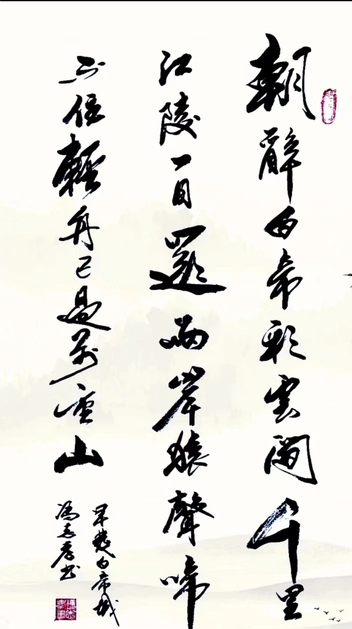 朝辭白帝彩雲間千里
江陵一日還兩岸猿聲啼
不住輕舟已過萬重山
早發白帝城
馮
書